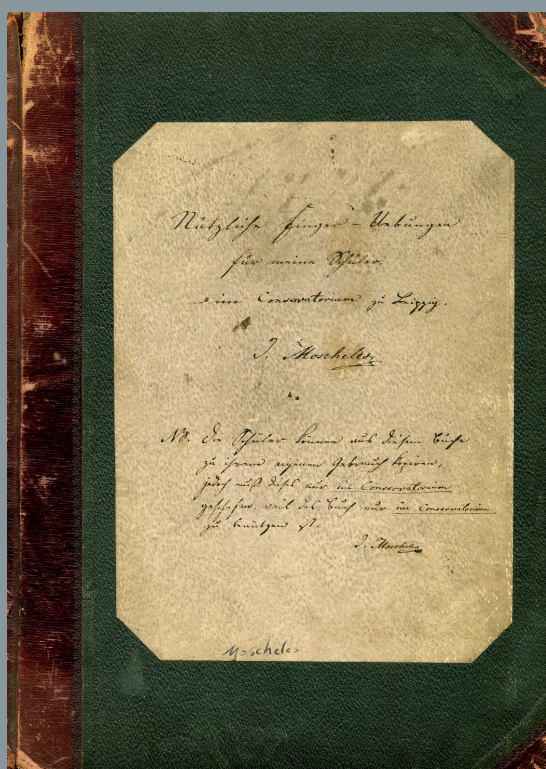 Nützliche Finger-Uebungen
für meine Schüler
im Conservatorium zu Leipzig.
I. Moscheles
NB. Die Schüler können aus diesem Buche
zu ihrem eigenen Gebrauch kopiren,
jedoch muß dieses nur im Conservatorium
geschehen, weil das Buch nur im Conservatorium
zu benützen ist.
I. Moscheles
Moscheles